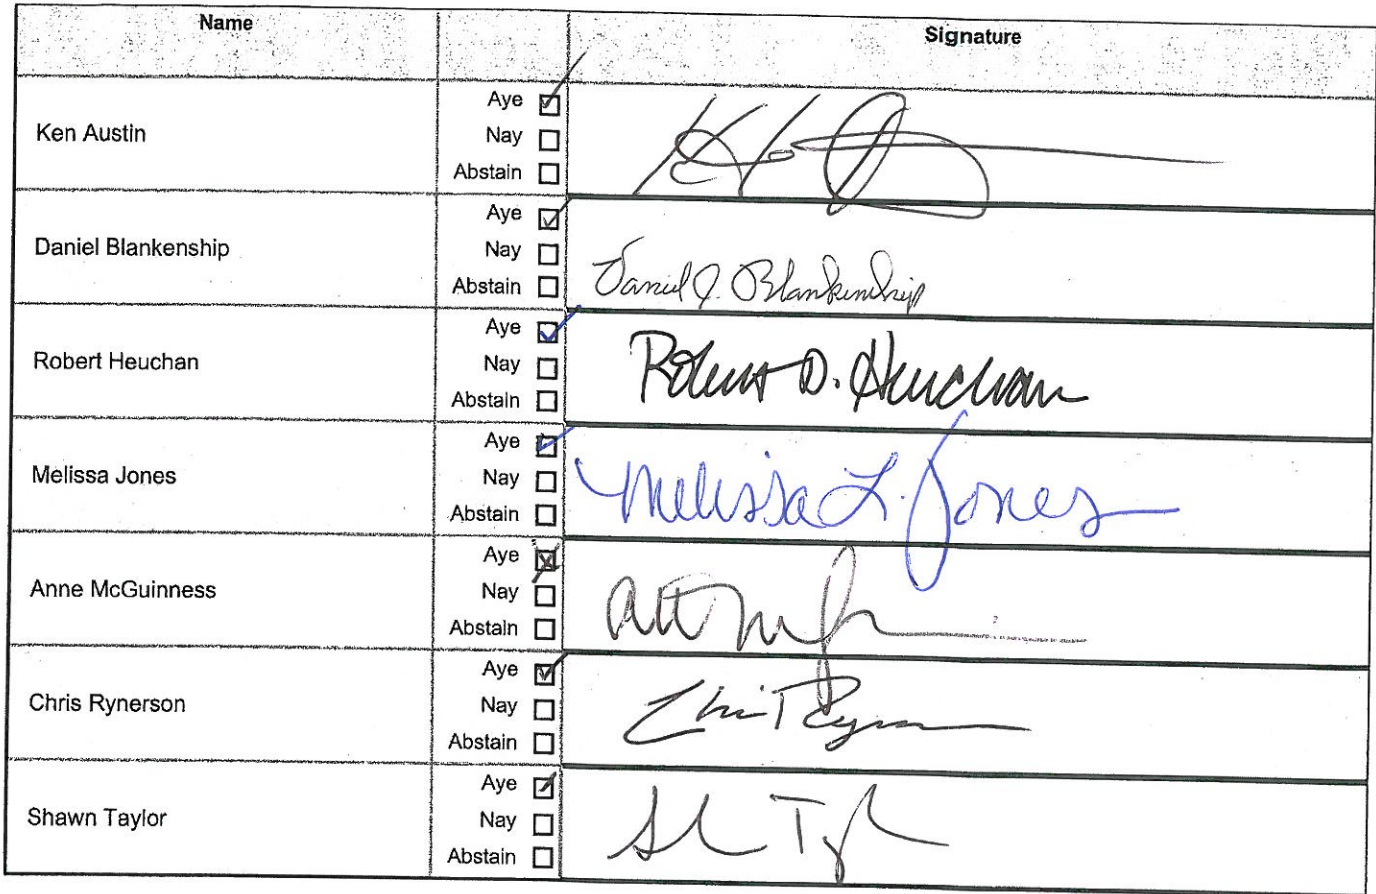 Name Signature
Aye
Ken Austin
Nay
Abstain
Aye
Daniel Blankenship
Nay
Abstain
Daniel J. Blankenship
Aye
Robert Heuchan
Nay
Abstain
Robert D. Heuchan
Aye
Melissa Jones
Nay
Abstain
Melissa L. Jones
Aye
Anne McGuinness
Nay
Abstain
Aye
Chris Rynerson
Nay
Abstain
Aye
Shawn Taylor
Nay
Abstain